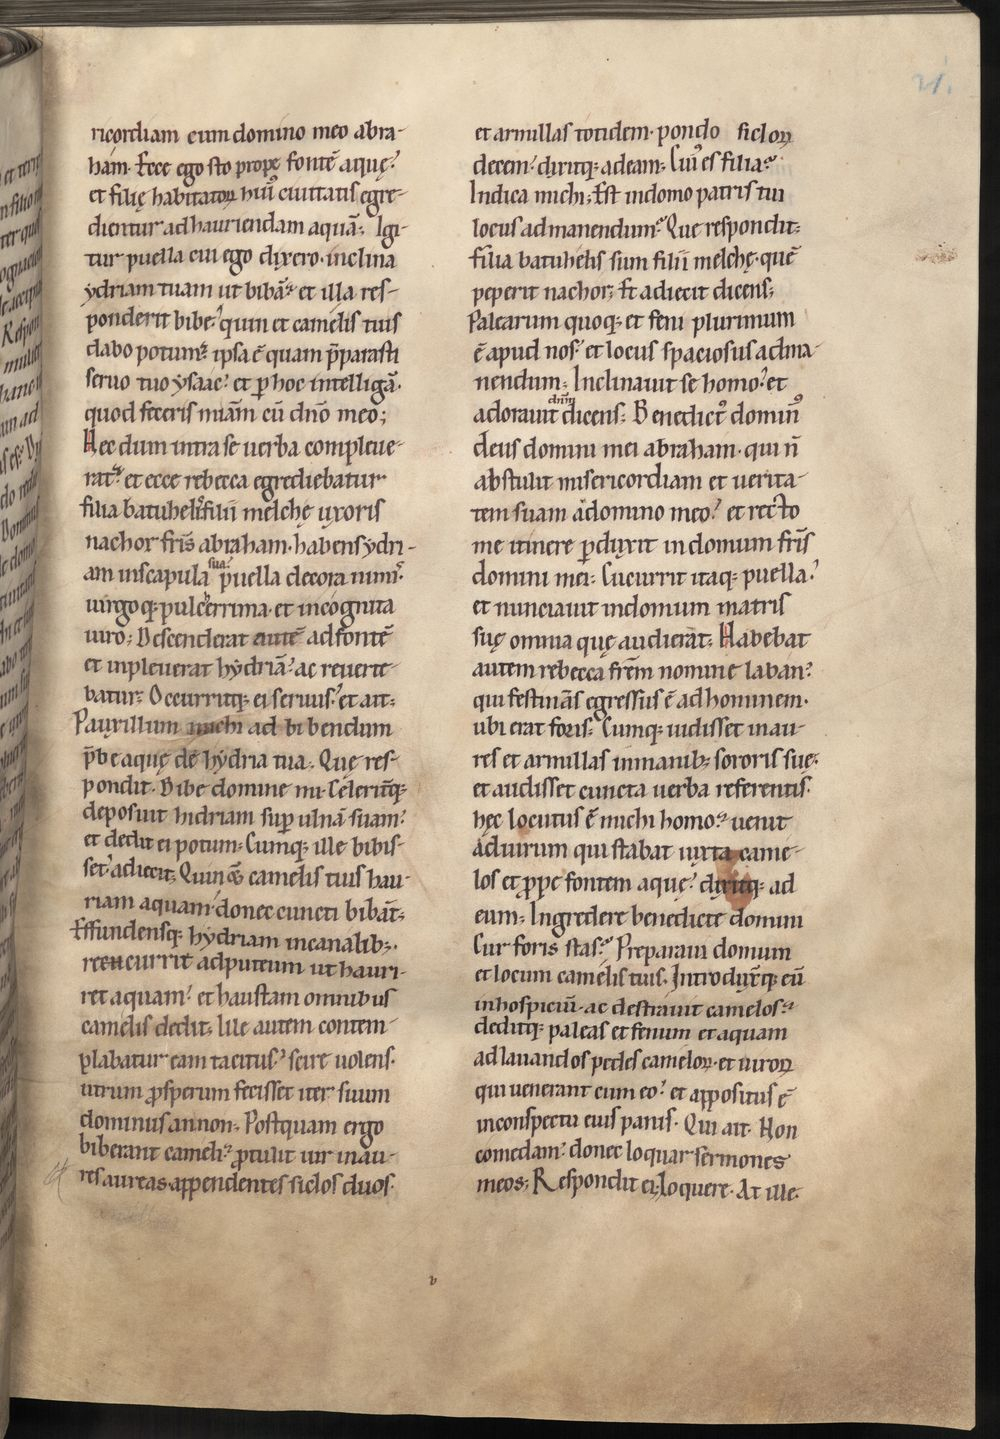 21.
ricordiam cum domino meo abra-
ham. Ecce ego sto prope fontē aquę?
et filię habitatoꝝ huiꝰ ciuitatis egre-
dientur ad hauriendam aquā; Igi-
tur puella cui ego dixero. inclina
ydriam tuam ut bibā; et illa res-
ponderit bibe? quin et camelis tuis
dabo potum; ipsa ē quam p̄parasti
seruo tuo ysaac? et ꝑ hoc intelligā.
quod feceris miam̄ cū dn̄o meo;
Hec dum intra se uerba compleue-
rat; et ecce rebecca egrediebatur
filia batuhelis filii melchę uxoris
nachor fris̄ abraham. habens ydri-
am in scapula sua? puella decora nimis.
uirgoqꝫ pulcherrima. et incognita
uiro; Descenderat autē ad fontē
et inpleuerat hydriā? ac reuerte-
batur; Occurritqꝫ ei seruus? et ait;
Pauxillum michi ad bibendum
p̄be aquę de hydria tua. Quę res-
pondit. Bibe domine mi. Celeritqꝫ
deposuit hidriam suꝑ ulnā suam?
et dedit ei potum; Cumqꝫ ille bibis-
set? adiecit; Quin & camelis tuis hau-
riam aquam. donec cuncti bibāt;
Effundensqꝫ hydriam in canalibꝫ.
recucurrit ad puteum ut hauri-
ret aquam? et haustam omnibus
camelis dedit; Ille autem contem-
plabatur eam tacitus? scire uolens.
utrum ꝓsperum fecisset iter suum
dominus an non; Postquam ergo
biberant cameli? ꝓtulit uir inau-
res aureas. appendentes siclos duos.
et armillas totidem. pondo sicloꝝ
decem? dixitqꝫ ad eam; Cuiꝰ es filia?
Indica michi; Est in domo patris tui
locus ad manendum? Que respondit;
filia batuhelis sum filii melchę. quē
peperit nachor; Et adiecit dicens;
Palearum quoqꝫ et feni plurimum
ē apud nos? et locus spaciosus ad ma-
nendum; Inclinauit se homo? et
adorauit dn̄m dicens; Benedictꝰ dominꝰ
deus domini mei abraham. qui n̄
abstulit misericordiam et uerita-
tem suam a domino meo? et recto
me itinere ꝑduxit in domum fris̄
domini mei; Cucurrit itaqꝫ puella?
et nunciauit in domum matris
suę omnia quę audierat; Habebat
autem rebecca frem̄ nomine laban?
qui festinans egressus ē ad hominem.
ubi erat foris; Cumqꝫ uidisset inau-
res et armillas in manibꝫ sororis suę.
et audisset cuncta uerba referentis.
hęc locutus ē michi homo; uenit
ad uirum qui stabat iuxta came-
los et ꝓpe fontem aquę? dixitqꝫ ad
eum; Ingredere benedicte domini
Cur foris stas? Preparaui domum
et locum camelis tuis. Introduxitqꝫ eū
in hospiciū. ac destrauit camelos;
deditqꝫ paleas et fenum et aquam
ad lauandos pedes cameloꝝ. et uiroꝝ
qui uenerant cum eo? et appositus ē
in conspectu eius panis. Qui ait. Non
comedam? donec loquar sermones
meos; Respondit ei; loquere. At ille.
v